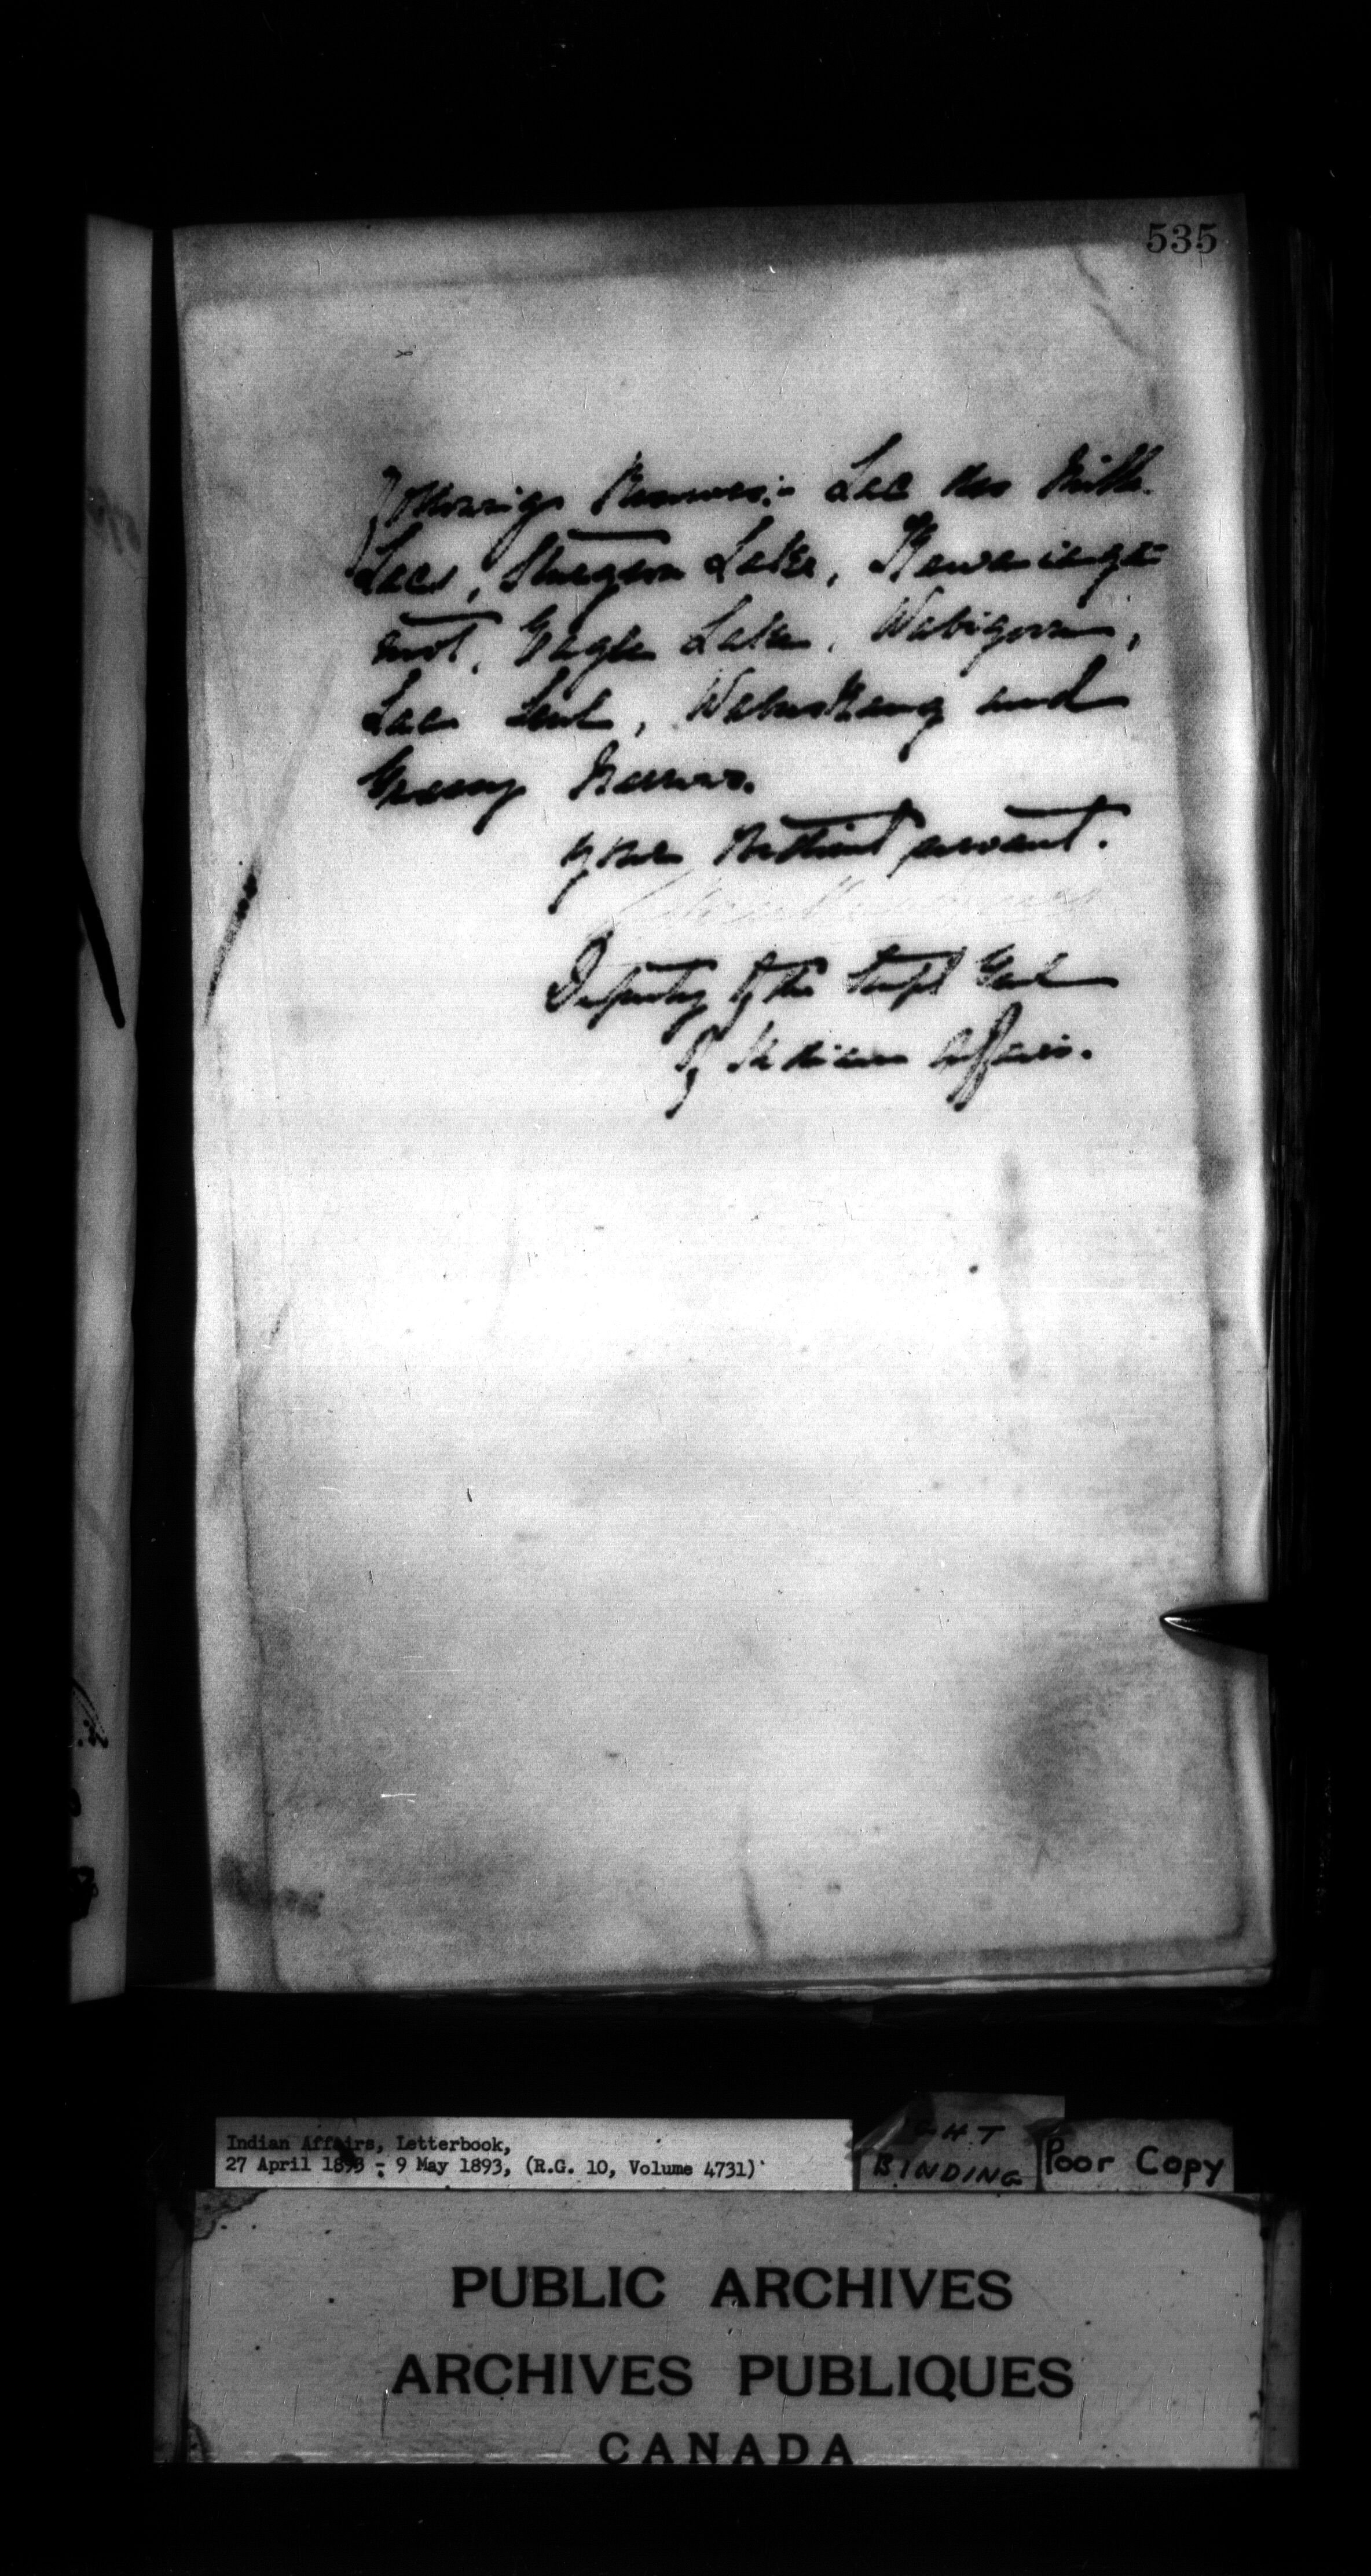 535
following Reserves:- Lac des Mille
Lacs, Sturgeon Lake, Kawaiaga-
mot, Eagle Lake, Wabigoon,
Lac Seul, Wabuskang and
Grassy Narrows.
Your obedient servant.
Deputy of the Supt Genl
of Indian Affairs.
Indian Affairs, Letterbook,
27 April 1893 - 9 May 1893, (R.G. 10, Volume 4731)
BINDING
Poor Copy
PUBLIC ARCHIVES
ARCHIVES PUBLIQUES
CANADA